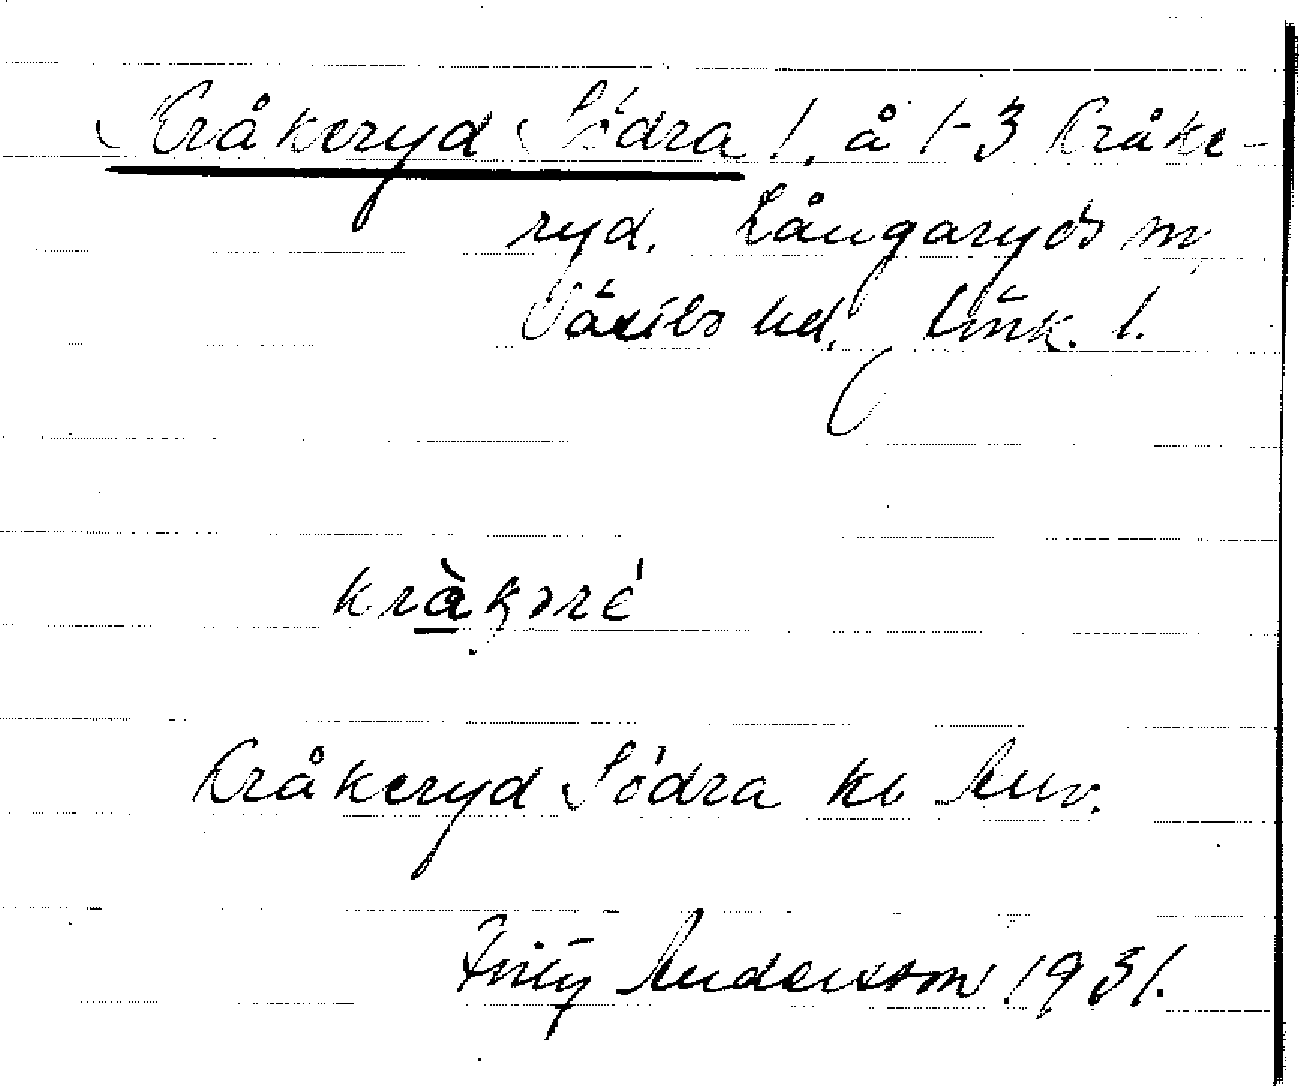 Kråkeryd Södra l. å 1-3 Kråke-
ryd. Långaryds sn,
Västbo hd, Jönk. l.
kràkəré
Kråkeryd Södra kb Anv.
Fritz Andersson 1931.